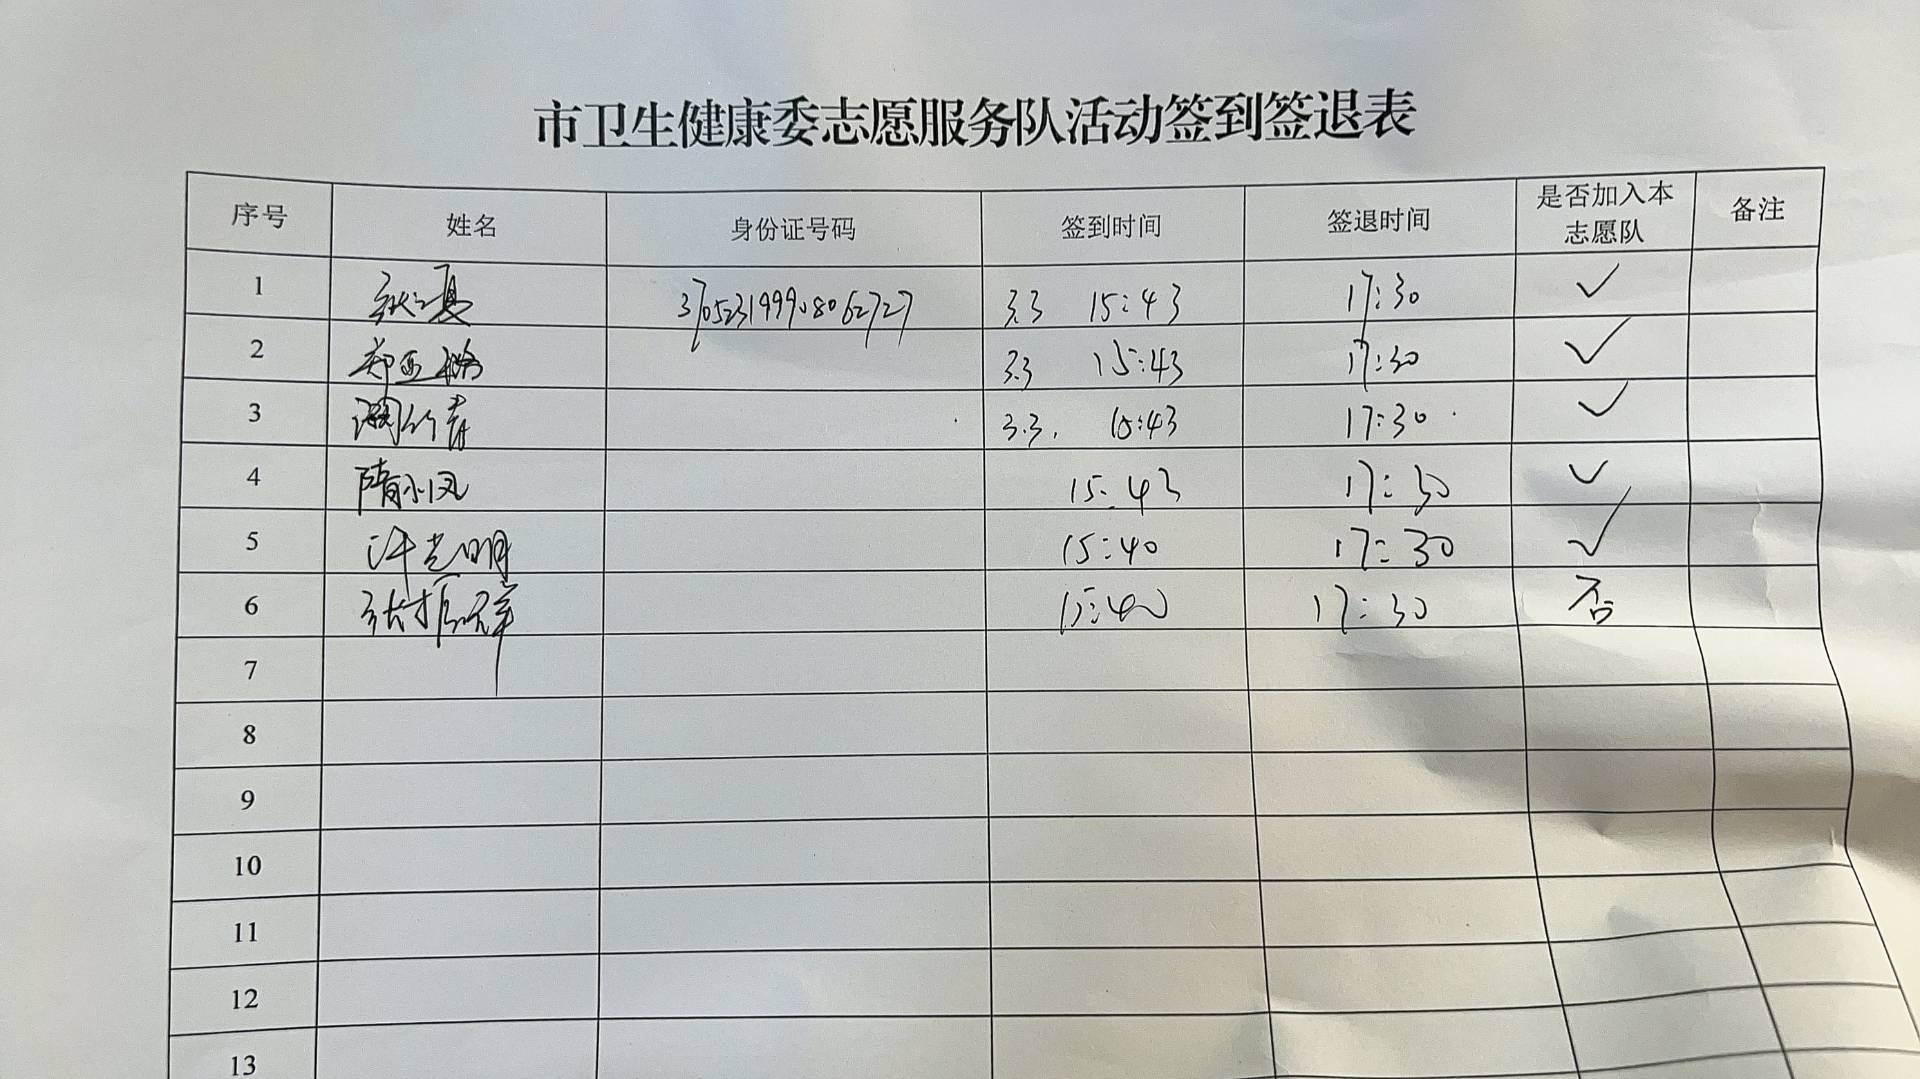 市卫生健康委志愿服务队活动签到签退表
序号 姓名 身份证号码 签到时间 签退时间 是否加入本志愿队 备注
1 370523199908062727 3.3 15:43 17:30 ✓
2 郑亚 3.3 15:43 17:30 ✓
3 3.3. 15:43 17:30 ✓
4 隋小凤 15:43 17:30 ✓
5 许光明 15:40 17:30 ✓
6 张振祥 15:40 17:30 否
7
8
9
10
11
12
13